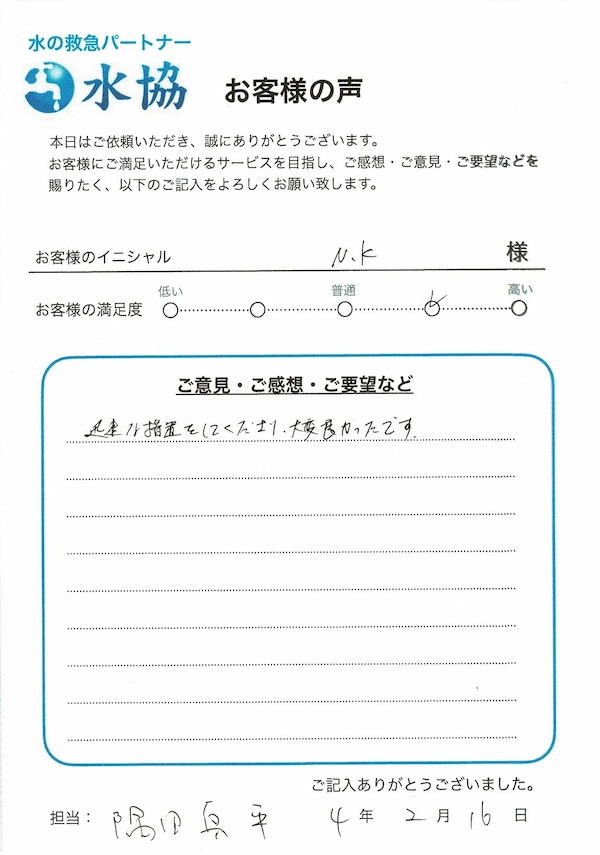 水の救急パートナー
水協 お客様の声
本日はご依頼いただき、誠にありがとうございます。
お客様にご満足いただけるサービスを目指し、ご感想・ご意見・ご要望などを
賜りたく、以下のご記入をよろしくお願い致します。
お客様のイニシャル N.K 様
低い 普通 高い
お客様の満足度
ご意見・ご感想・ご要望など
迅速な措置をしてくださり、大変良かったです。
ご記入ありがとうございました。
担当: 隅田真平 4年2月16日